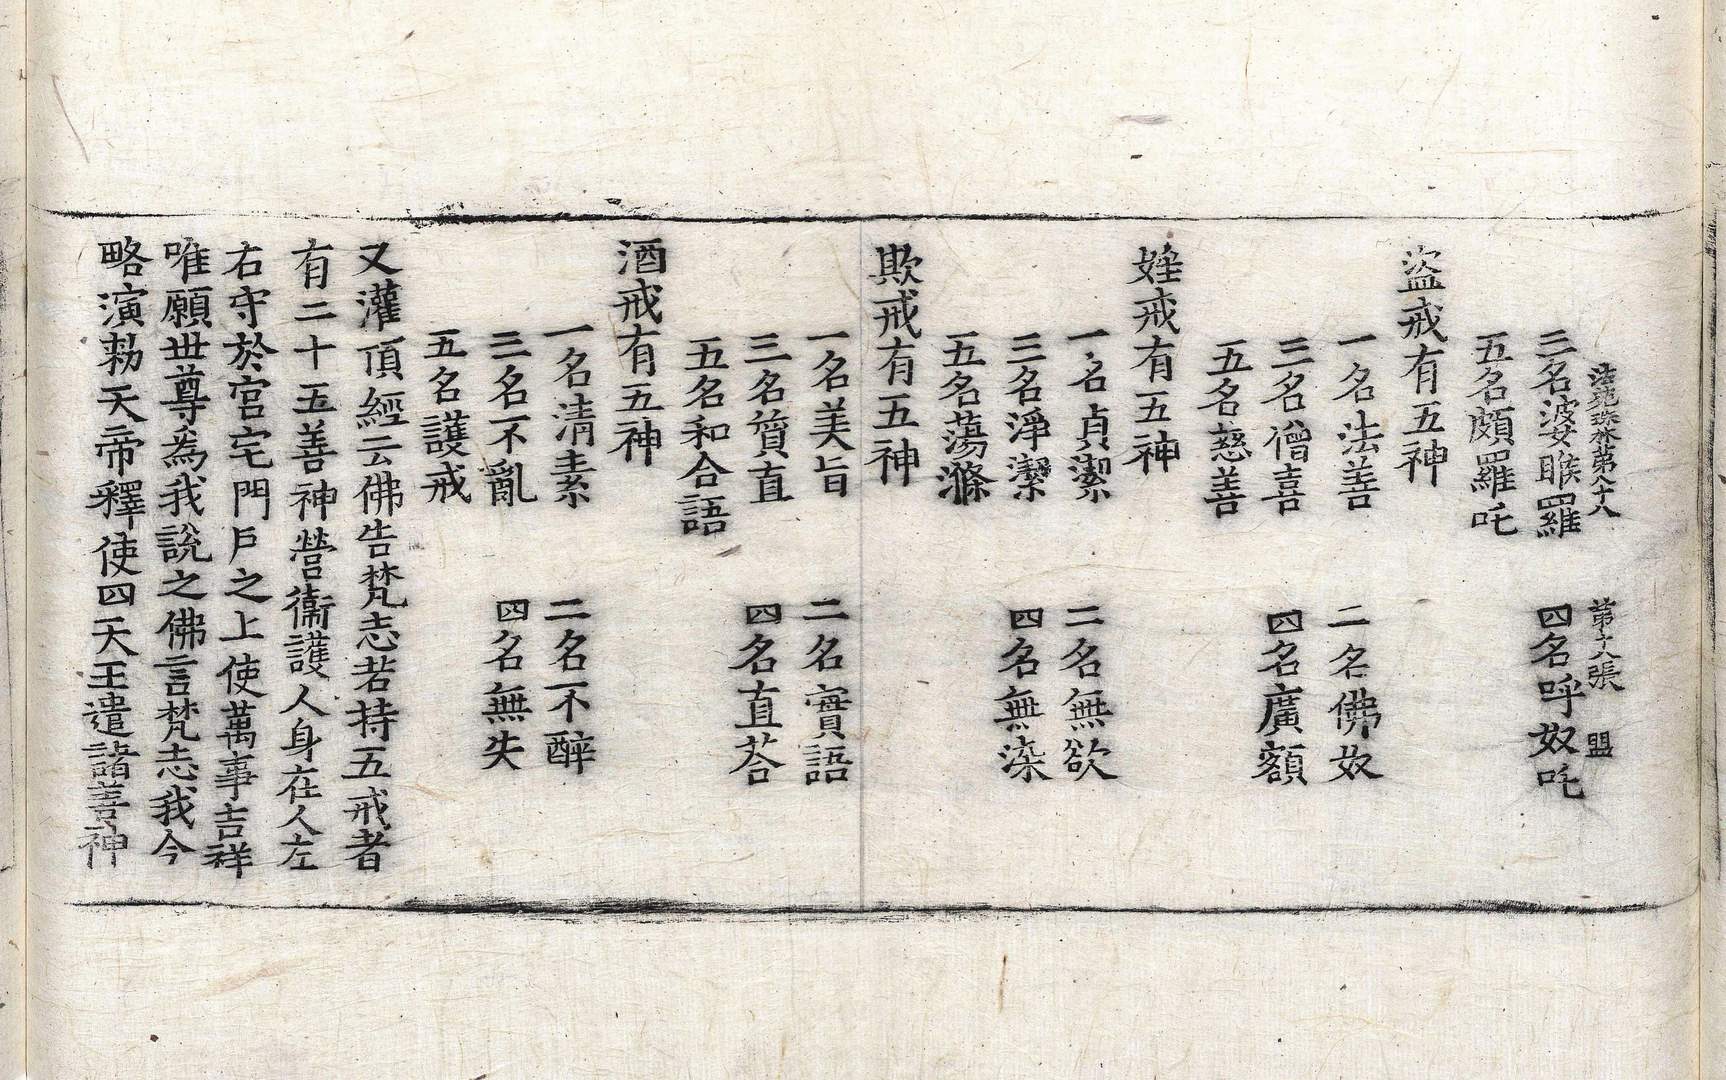 法苑珠林第八十八 第十八張 盟
三名婆睺羅 四名呼奴吒
五名頗羅吒
盜戒有五神
一名法善 二名佛奴
三名僧喜 四名廣額
五名慈善
婬戒有五神
一名貞潔 二名無欲
三名淨潔 四名無染
五名蕩滌
欺戒有五神
一名美旨 二名實語
三名質直 四名直荅
五名和合語
酒戒有五神
一名清素 二名不醉
三名不亂 四名無失
五名護戒
又灌頂經云佛告梵志若持五戒者
有二十五善神營衞護人身在人左
右守於宮宅門戶之上使萬事吉祥
唯願世尊為我說之佛言梵志我今
略演勑天帝釋使四天王遣諸善神